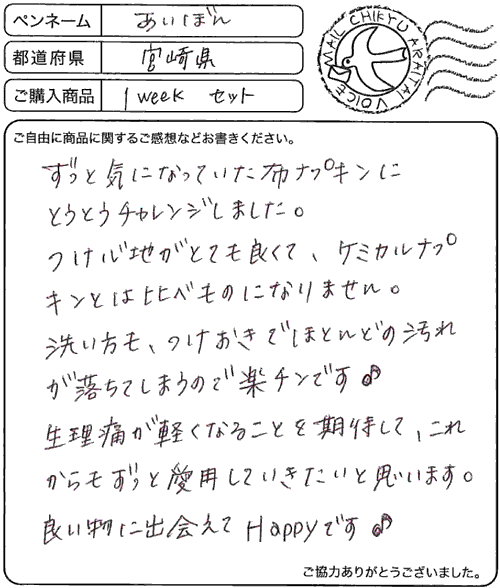 ペンネーム あいぼん
都道府県 宮崎県
ご購入商品 1week セット
MAIL CHIKYU ARAITAI VOICE
ご自由に商品に関するご感想などお書きください。
ずっと気になっていた布ナプキンに
とうとうチャレンジしました。
つけ心地がとても良くて、ケミカルナプ
キンとは比べものになりません。
洗い方も、つけおきでほとんどの汚れ
が落ちてしまうので楽チンです♪
生理痛が軽くなることを期待して、これ
からもずっと愛用していきたいと思います。
良い物に出会えてHappyです♪
ご協力ありがとうございました。